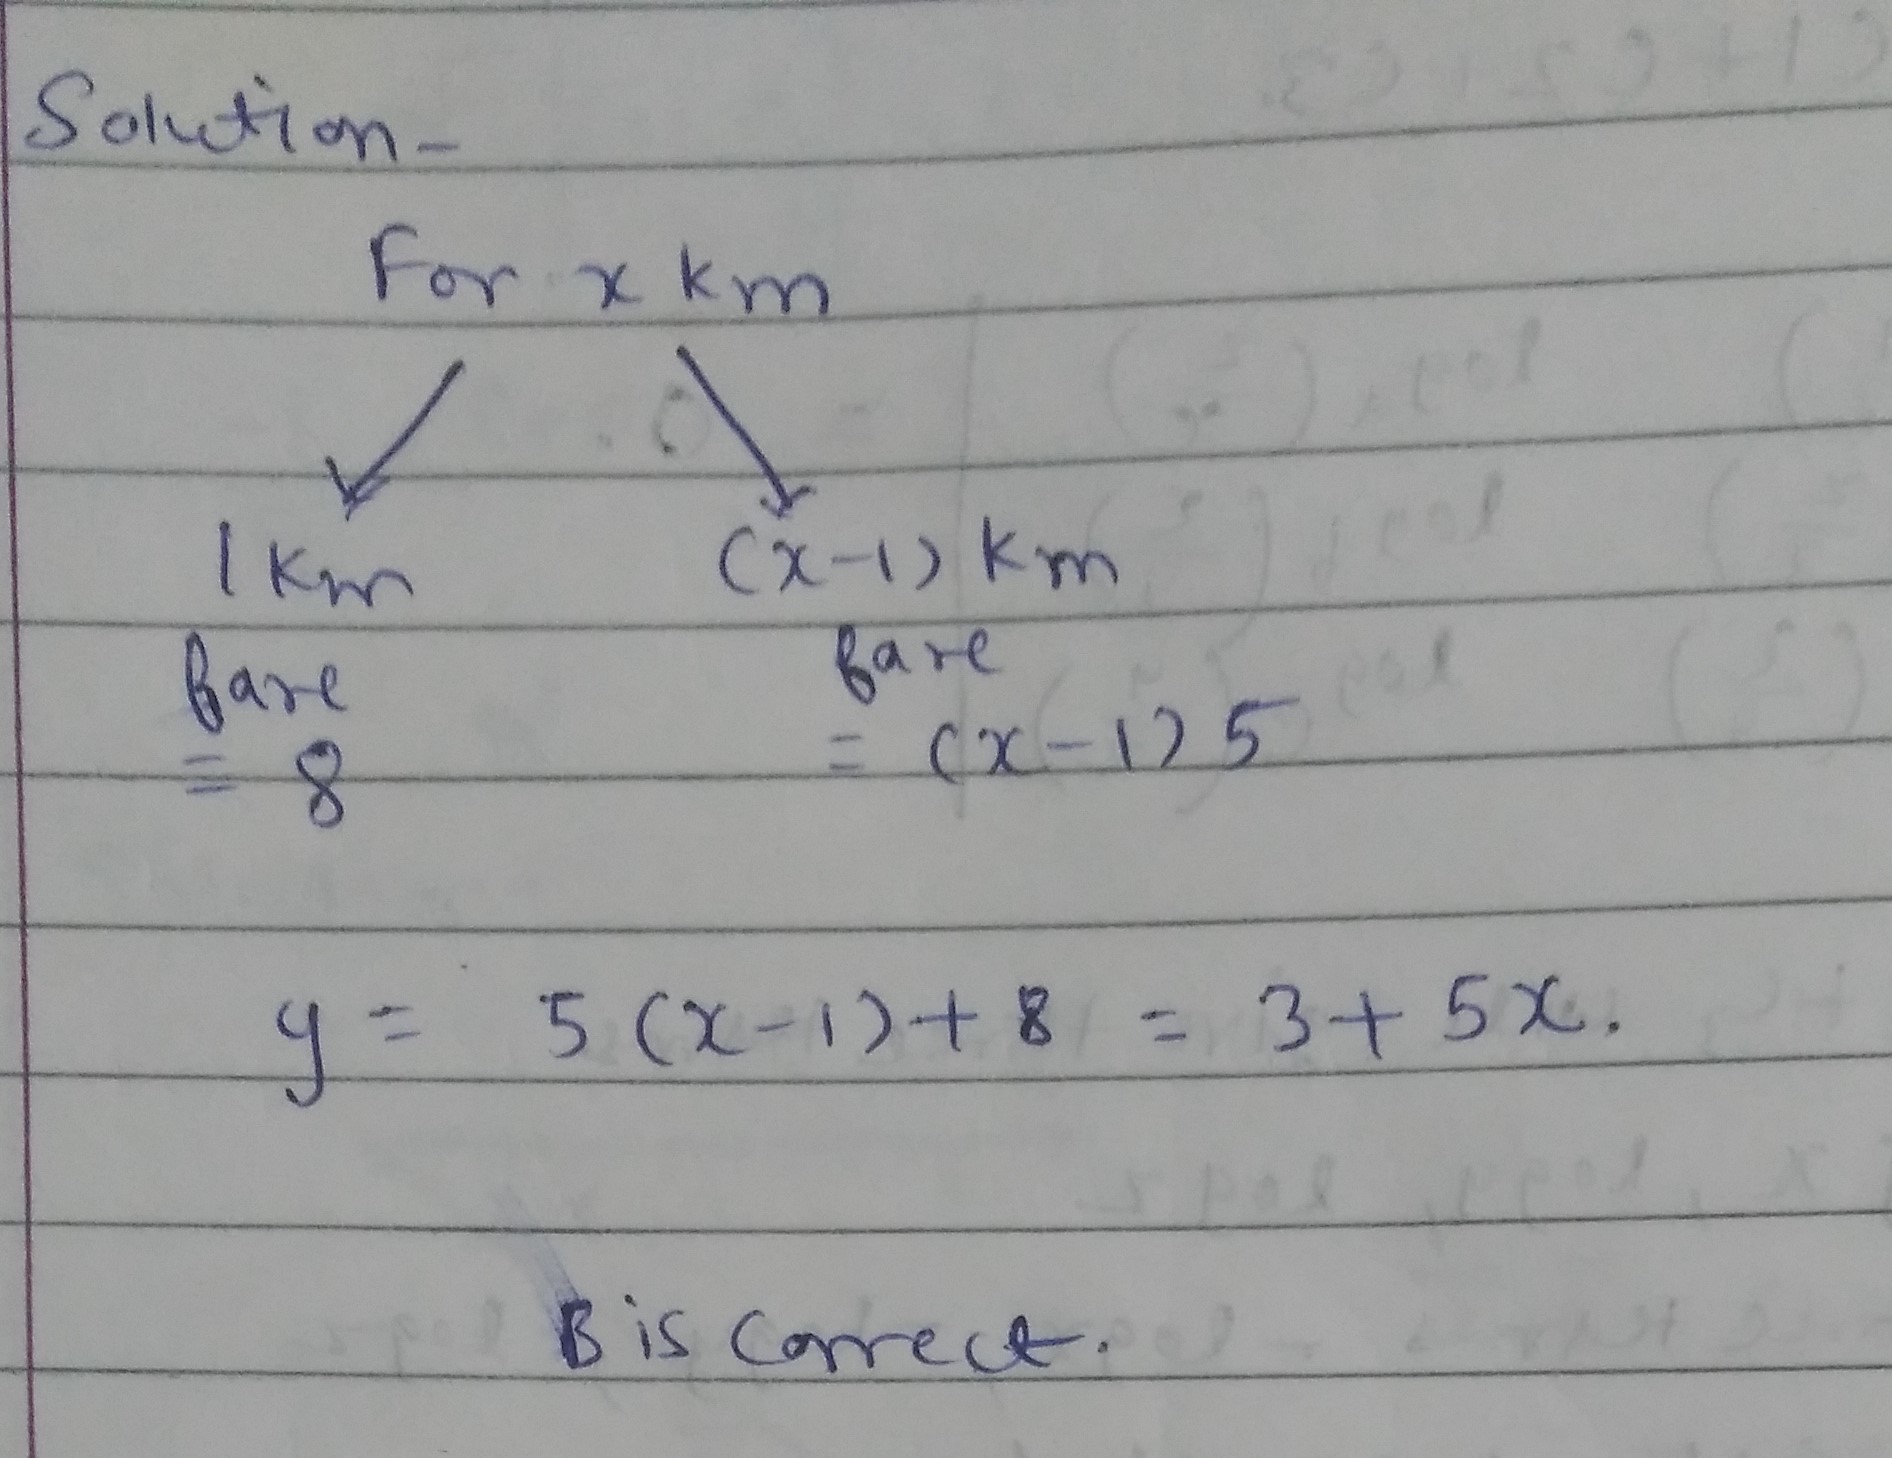 Solution-
For x km
1 km (x-1) km
fare fare
= 8 = (x-1) 5
y = 5 (x-1) + 8 = 3 + 5x.
B is correct.